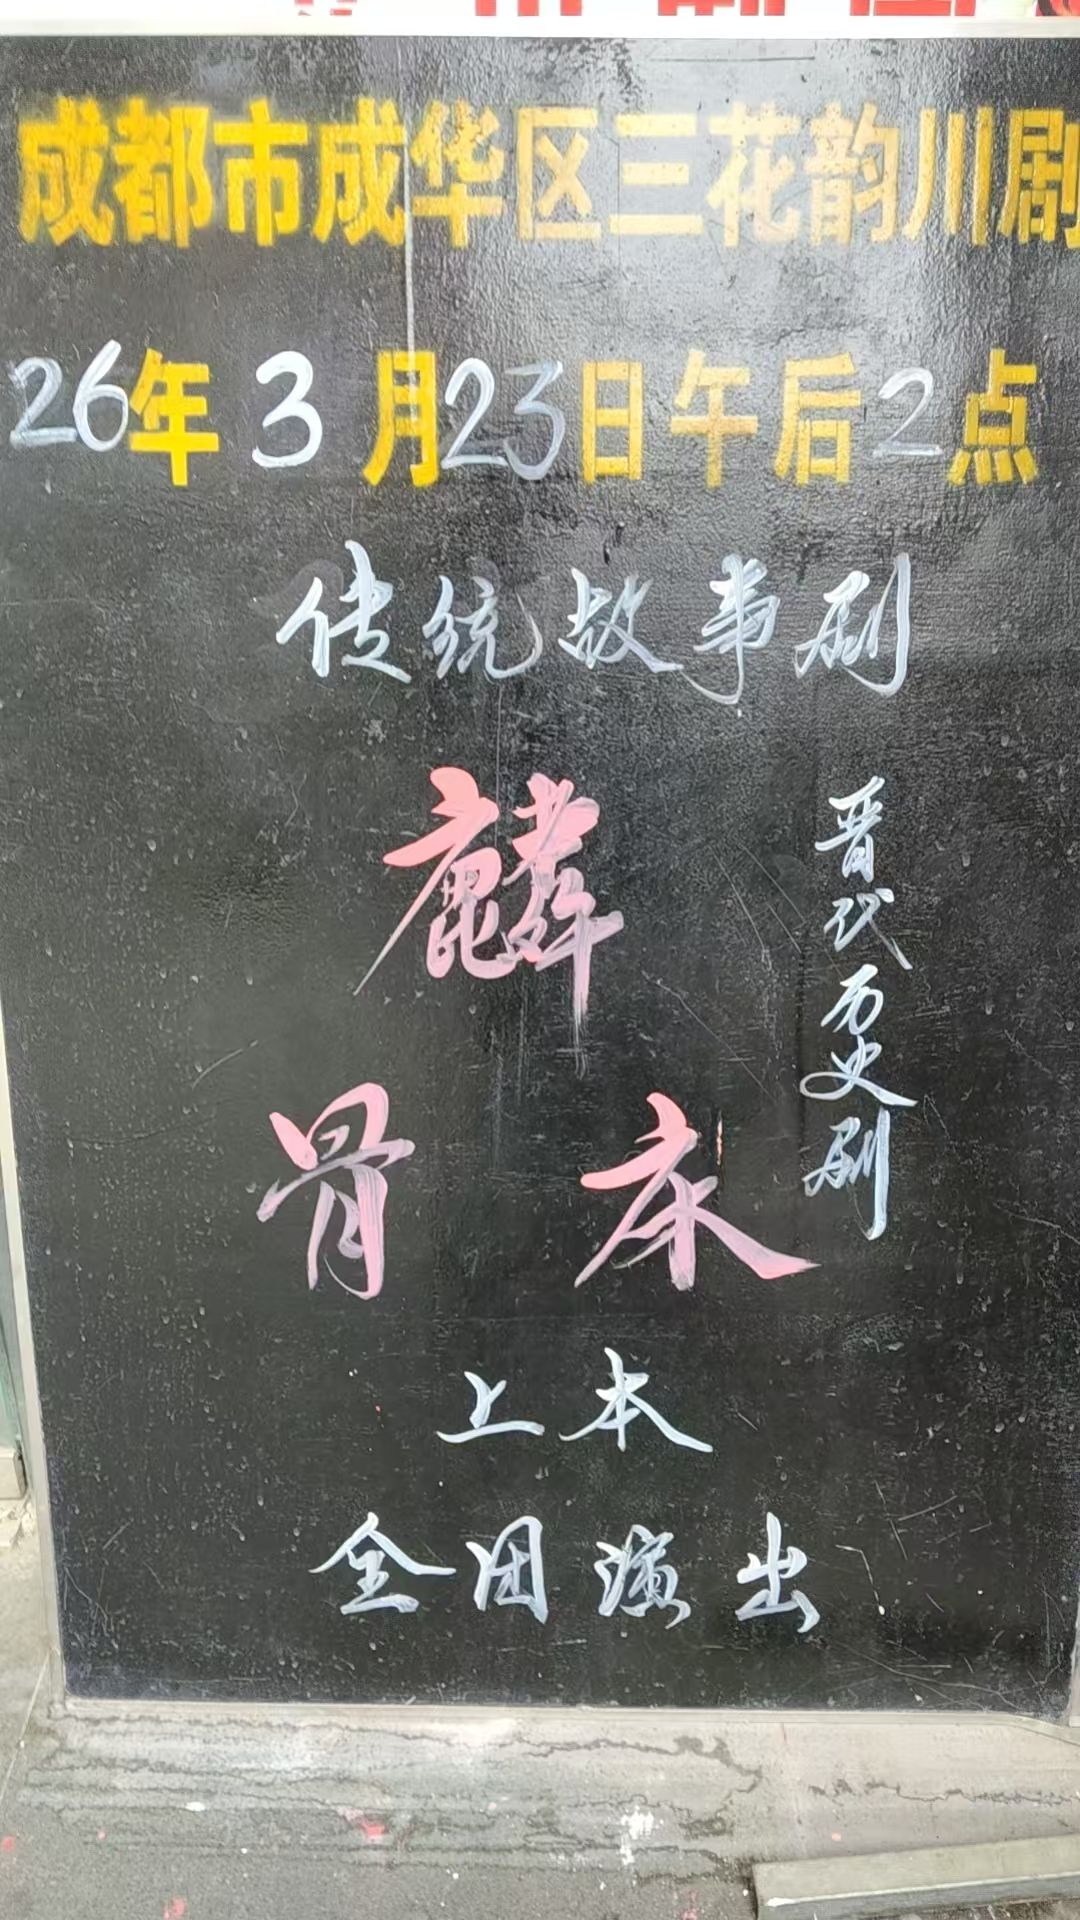 成都市成华区三花韵川剧
26年3月23日午后2点
传统故事剧
麟
骨床
晋代历史剧
上本
全团演出